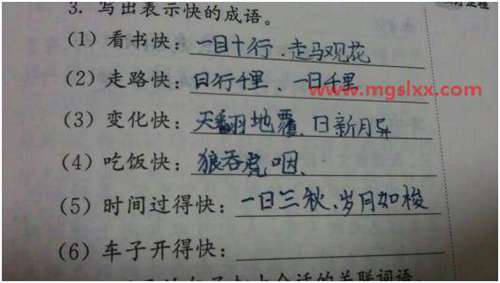 3. 写出表示快的成语。
(1) 看书快：一目十行、走马观花
(2) 走路快：日行千里、一日千里
www.mgslxx.com
(3) 变化快：天翻地覆、日新月异
(4) 吃饭快：狼吞虎咽、
(5) 时间过得快：一日三秋、岁月如梭
(6) 车子开得快：